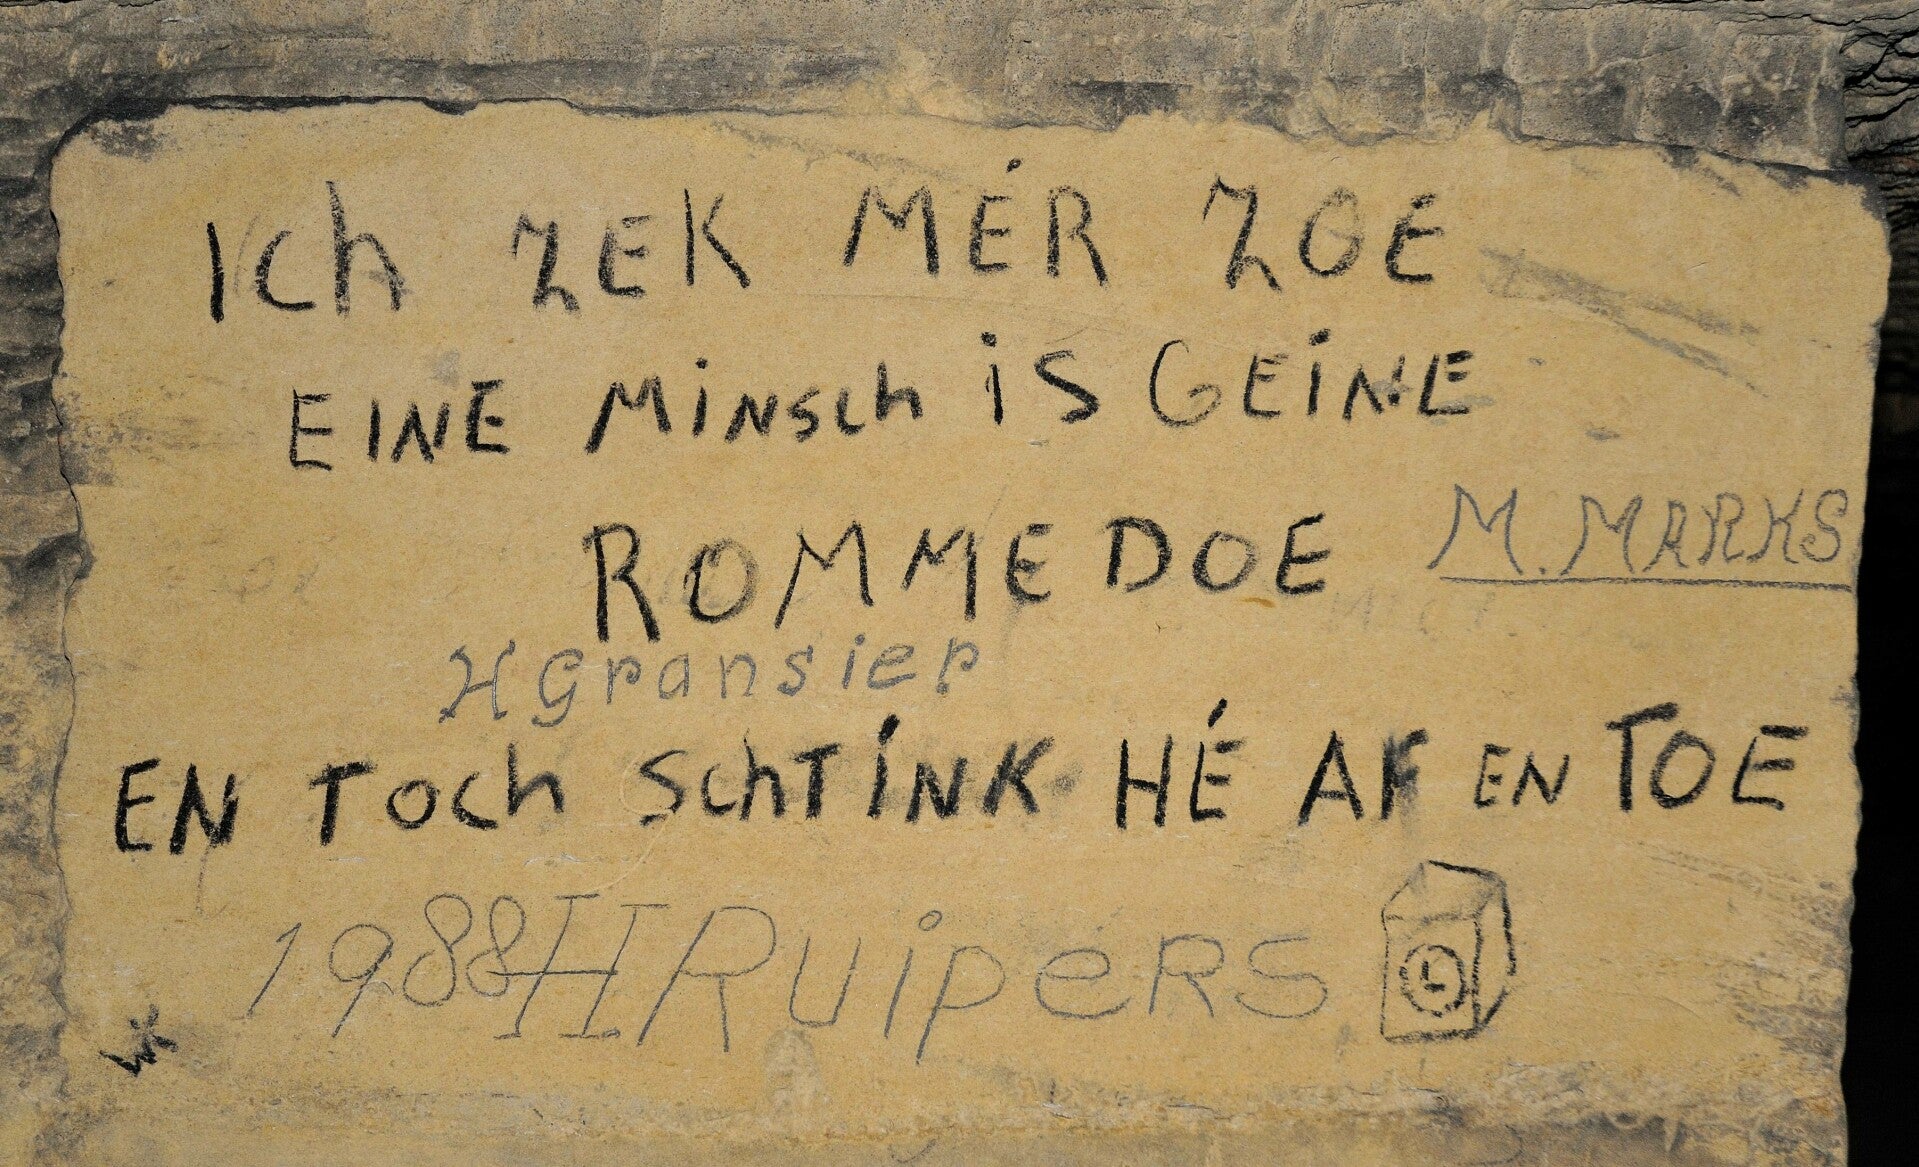 Ich ZEK MÉR ZOE
EINE MiNSch iS GEiNE
ROMMEDOE
M. MARKS
H Gransier
EN Toch SchTÍNK HÉ AF EN TOE
1988 H Ruipers
L